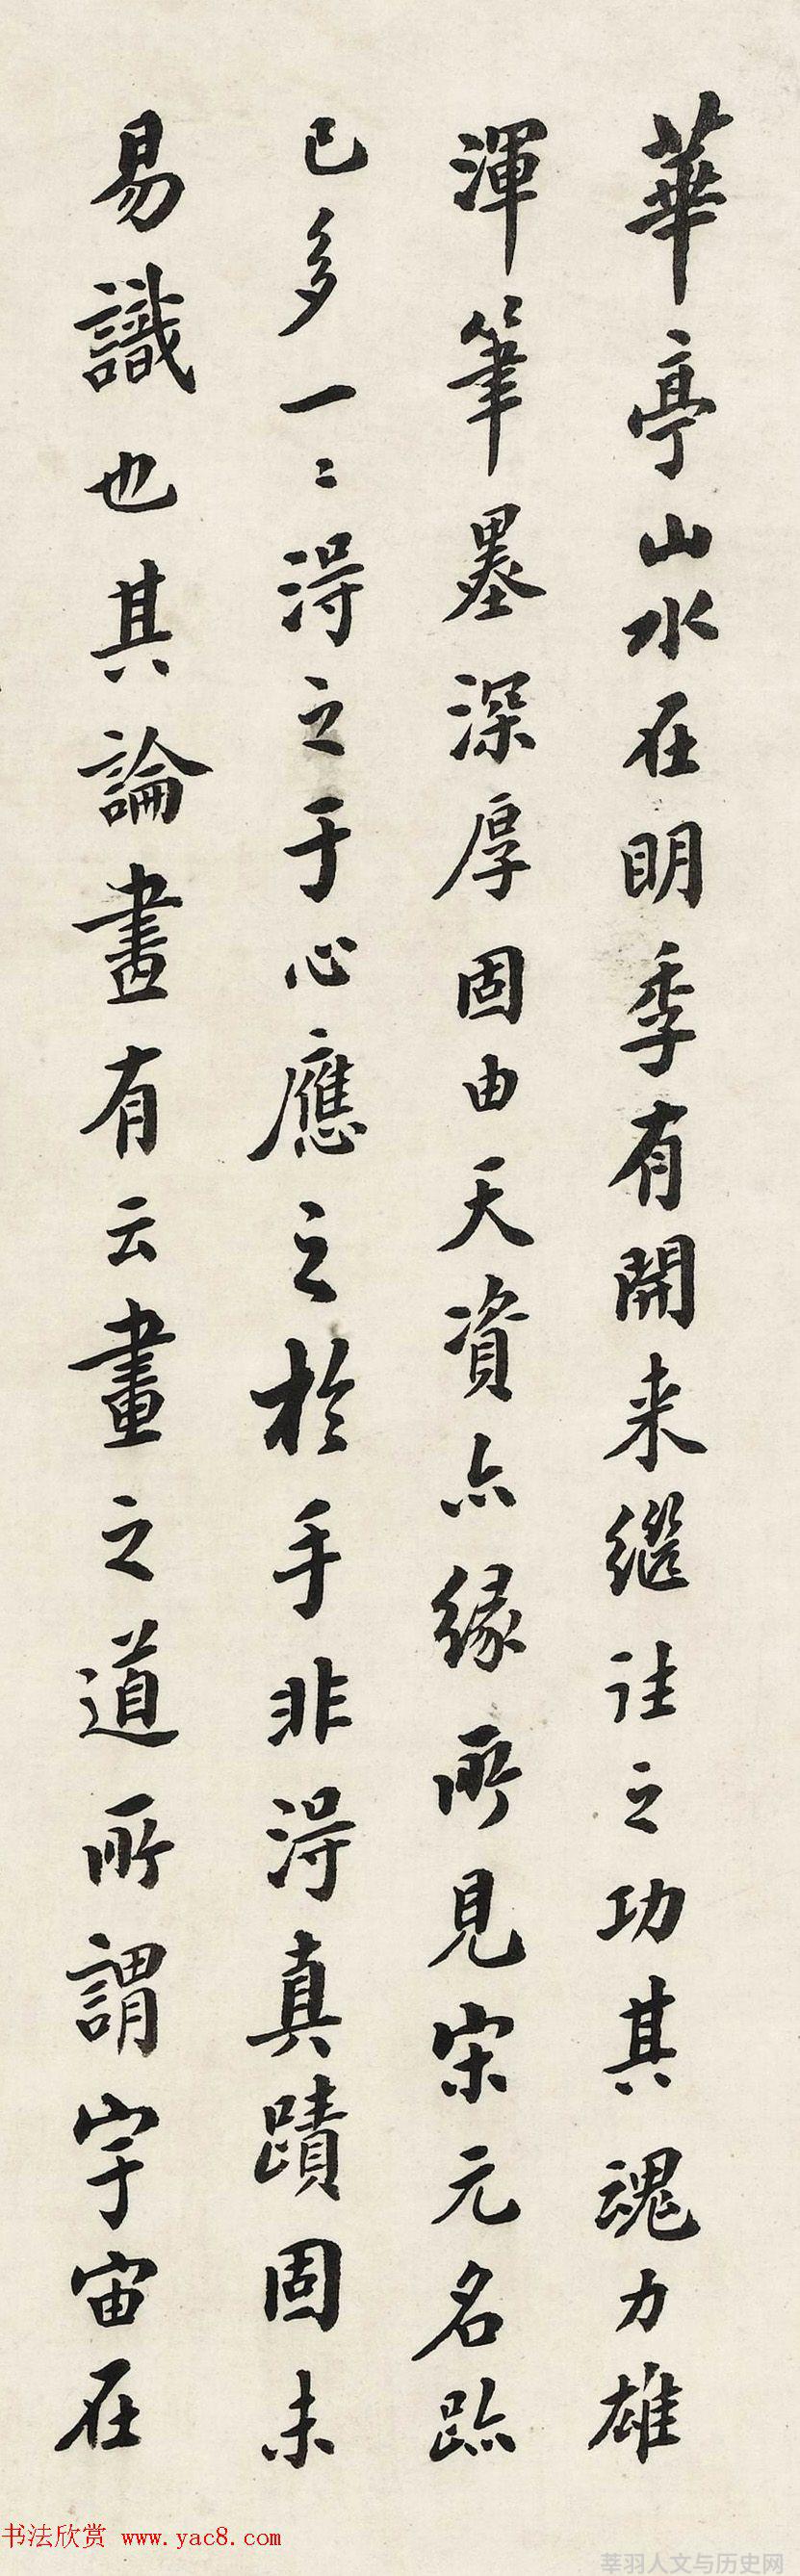 華亭山水在明季有開来繼往之功其魂力雄
渾筆墨深厚固由天資亦緣所見宋元名跡
已多一〻淂之于心應之於手非淂真蹟固未
易識也其論畫有云畫之道所謂宇宙在
书法欣赏 www.yac8.com
莘羽人文与历史网